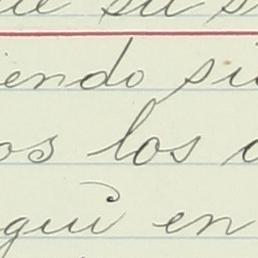 su s
endo si
os los
gui en